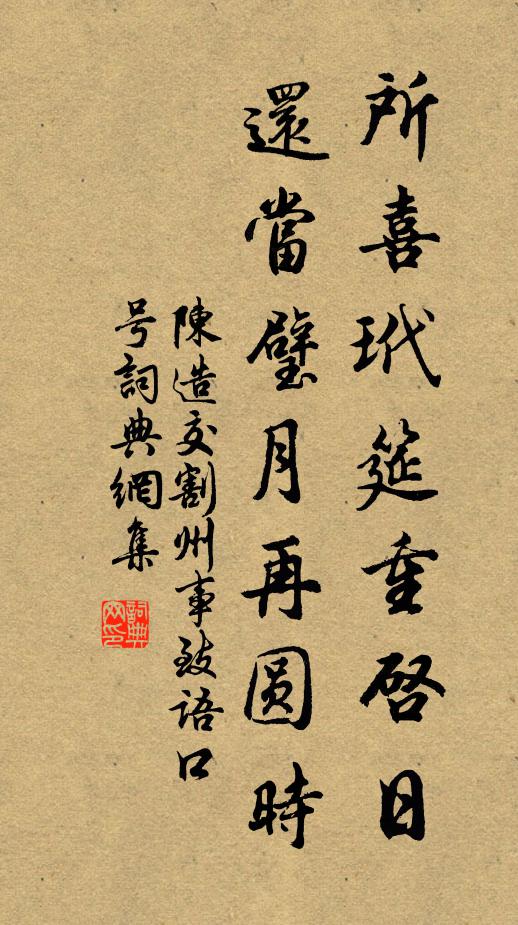 所喜玳筵重啓日
還當璧月再圓時
陳造交割州事致語口
号詞典網集
詞典網印